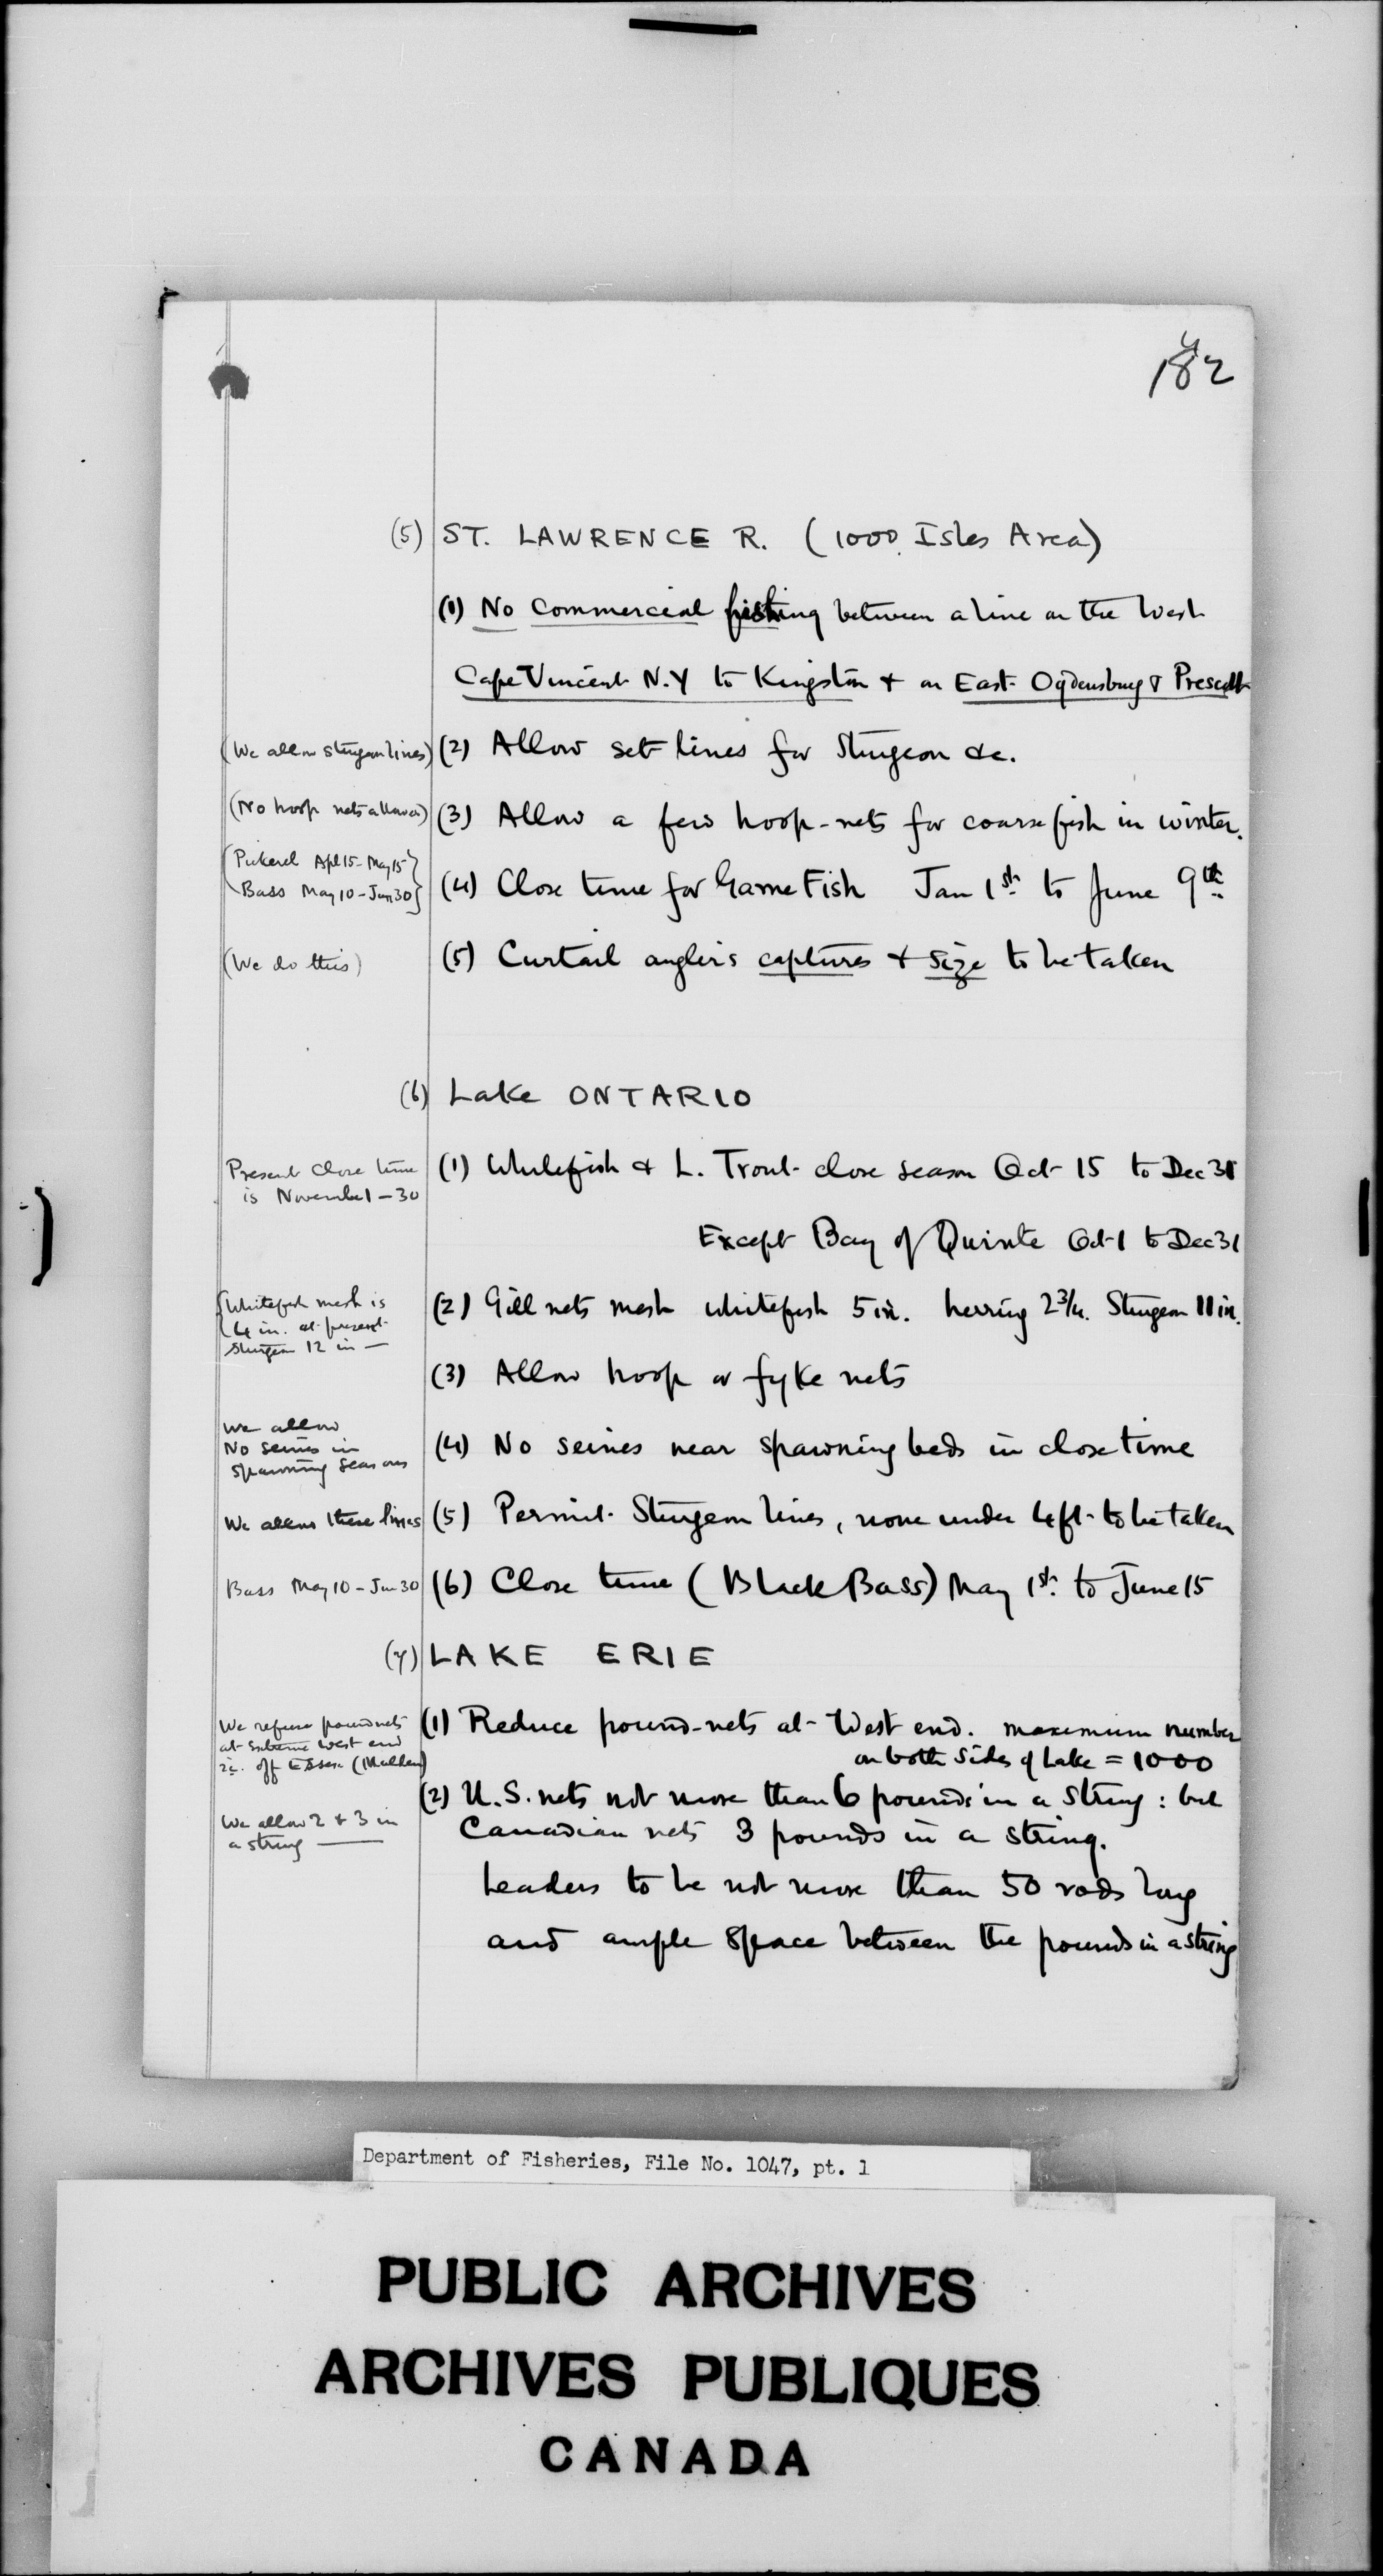 182
(5) ST. LAWRENCE R. (1000 Isles Area)
(1) No Commercial fishing between a line on the West
Cape Vincent N.Y to Kingston + on East Ogdensburg & Prescott
(We allow sturgeon lines) (2) Allow set lines for Sturgeon &c.
(No hoop nets allowed) (3) Allow a few hoop-nets for coarse fish in winter.
(Pickerel Apl 15 - May 15
Bass May 10 - Jun 30) (4) Close time for Game Fish Jan 1st to June 9th
(We do this) (5) Curtail angler's captures + size to be taken
(6) Lake ONTARIO
Present close time
is November 1 - 30
(1) Whitefish & L. Trout close season Oct 15 to Dec 31
Except Bay of Quinte Oct 1 to Dec 31
Whitefish mesh is
4 in. at present
Sturgeon 12 in —
(2) Gill nets mesh whitefish 5 in. herring 2 3/4. Sturgeon 11 in.
(3) Allow hoop or fyke nets
We allow
No seines in
spawning seasons
(4) No seines near spawning beds in close time
We allow these lines (5) Permit Sturgeon lines, none under 4 ft to be taken
Bass May 10 - Jun 30 (6) Close time (Black Bass) May 1st to June 15
(7) LAKE ERIE
We refuse pound nets
at extreme west end
ie. off Essex (Malden)
(1) Reduce pound-nets at West end. maximum number
on both sides of Lake = 1000
We allow 2 & 3 in
a string
(2) U.S. nets not more than 6 pounds in a string: but
Canadian nets 3 pounds in a string.
Leaders to be not more than 50 rods long
and ample space between the pounds in a string
Department of Fisheries, File No. 1047, pt. 1
PUBLIC ARCHIVES
ARCHIVES PUBLIQUES
CANADA